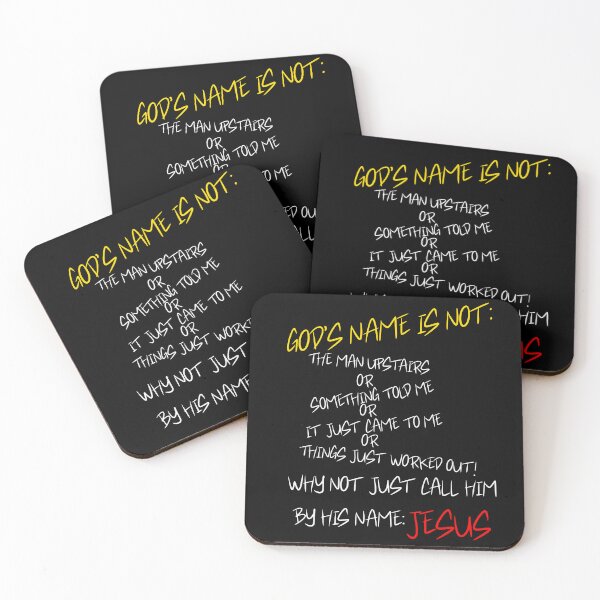 GOD'S NAME IS NOT:
THE MAN UPSTAIRS
OR
SOMETHING TOLD ME
TO ME
OUT!
GOD'S NAME IS NOT:
THE MAN UPSTAIRS
OR
SOMETHING TOLD ME
OR
IT JUST CAME TO ME
OR
THINGS JUST WORKED OUT!
HIM
GOD'S NAME IS NOT:
THE MAN UPSTAIRS
OR
SOMETHING TOLD ME
OR
IT JUST CAME TO ME
OR
THINGS JUST
WHY NOT JUST
BY HIS NAME
GOD'S NAME IS NOT:
THE MAN UPSTAIRS
OR
SOMETHING TOLD ME
OR
IT JUST CAME TO ME
OR
THINGS JUST WORKED OUT!
WHY NOT JUST CALL HIM
BY HIS NAME: JESUS